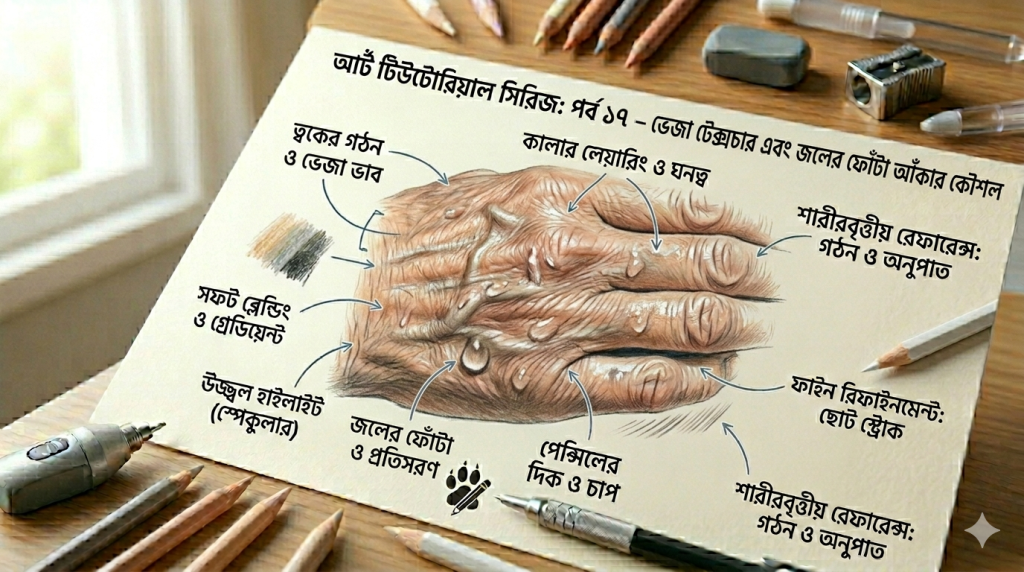 আর্ট টিউটোরিয়াল সিরিজ: পর্ব ১৭ – ভেজা টেক্সচার এবং জলের ফোঁটা আঁকার কৌশল
ত্বকের গঠন
ও ভেজা ভাব
কালার লেয়ারিং ও ঘনত্ব
শারীরবৃত্তীয় রেফারেন্স:
গঠন ও অনুপাত
সফট ব্লেন্ডিং
ও গ্রেডিয়েন্ট
উজ্জ্বল হাইলাইট
(স্পেকুলার)
জলের ফোঁটা
ও প্রতিসরণ
পেন্সিলের
দিক ও চাপ
ফাইন রিফাইনমেন্ট:
ছোট স্ট্রোক
শারীরবৃত্তীয় রেফারেন্স:
গঠন ও অনুপাত